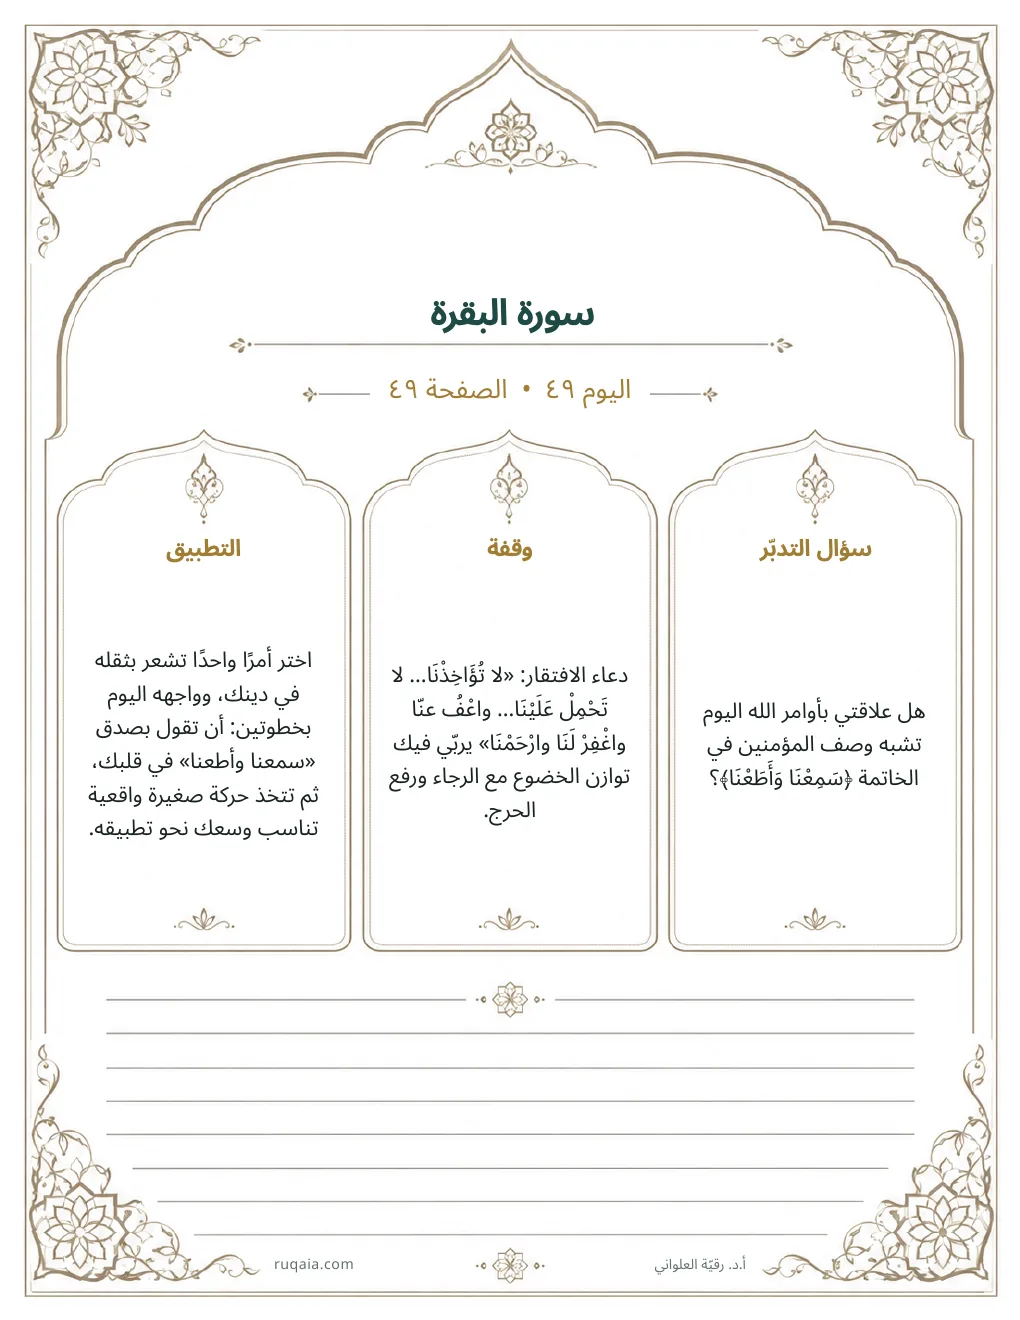 سورة البقرة
اليوم ٤٩ • الصفحة ٤٩
سؤال التدبّر
هل علاقتي بأوامر الله اليوم
تشبه وصف المؤمنين في
الخاتمة ﴿سَمِعْنَا وَأَطَعْنَا﴾؟
وقفة
دعاء الافتقار: «لا تُؤَاخِذْنَا... لا
تَحْمِلْ عَلَيْنَا... واعْفُ عنّا
واغْفِرْ لَنَا وارْحَمْنَا» يربّي فيك
توازن الخضوع مع الرجاء ورفع
الحرج.
التطبيق
اختر أمرًا واحدًا تشعر بثقله
في دينك، وواجهه اليوم
بخطوتين: أن تقول بصدق
«سمعنا وأطعنا» في قلبك،
ثم تتخذ حركة صغيرة واقعية
تناسب وسعك نحو تطبيقه.
أ.د. رقيّة العلواني
ruqaia.com